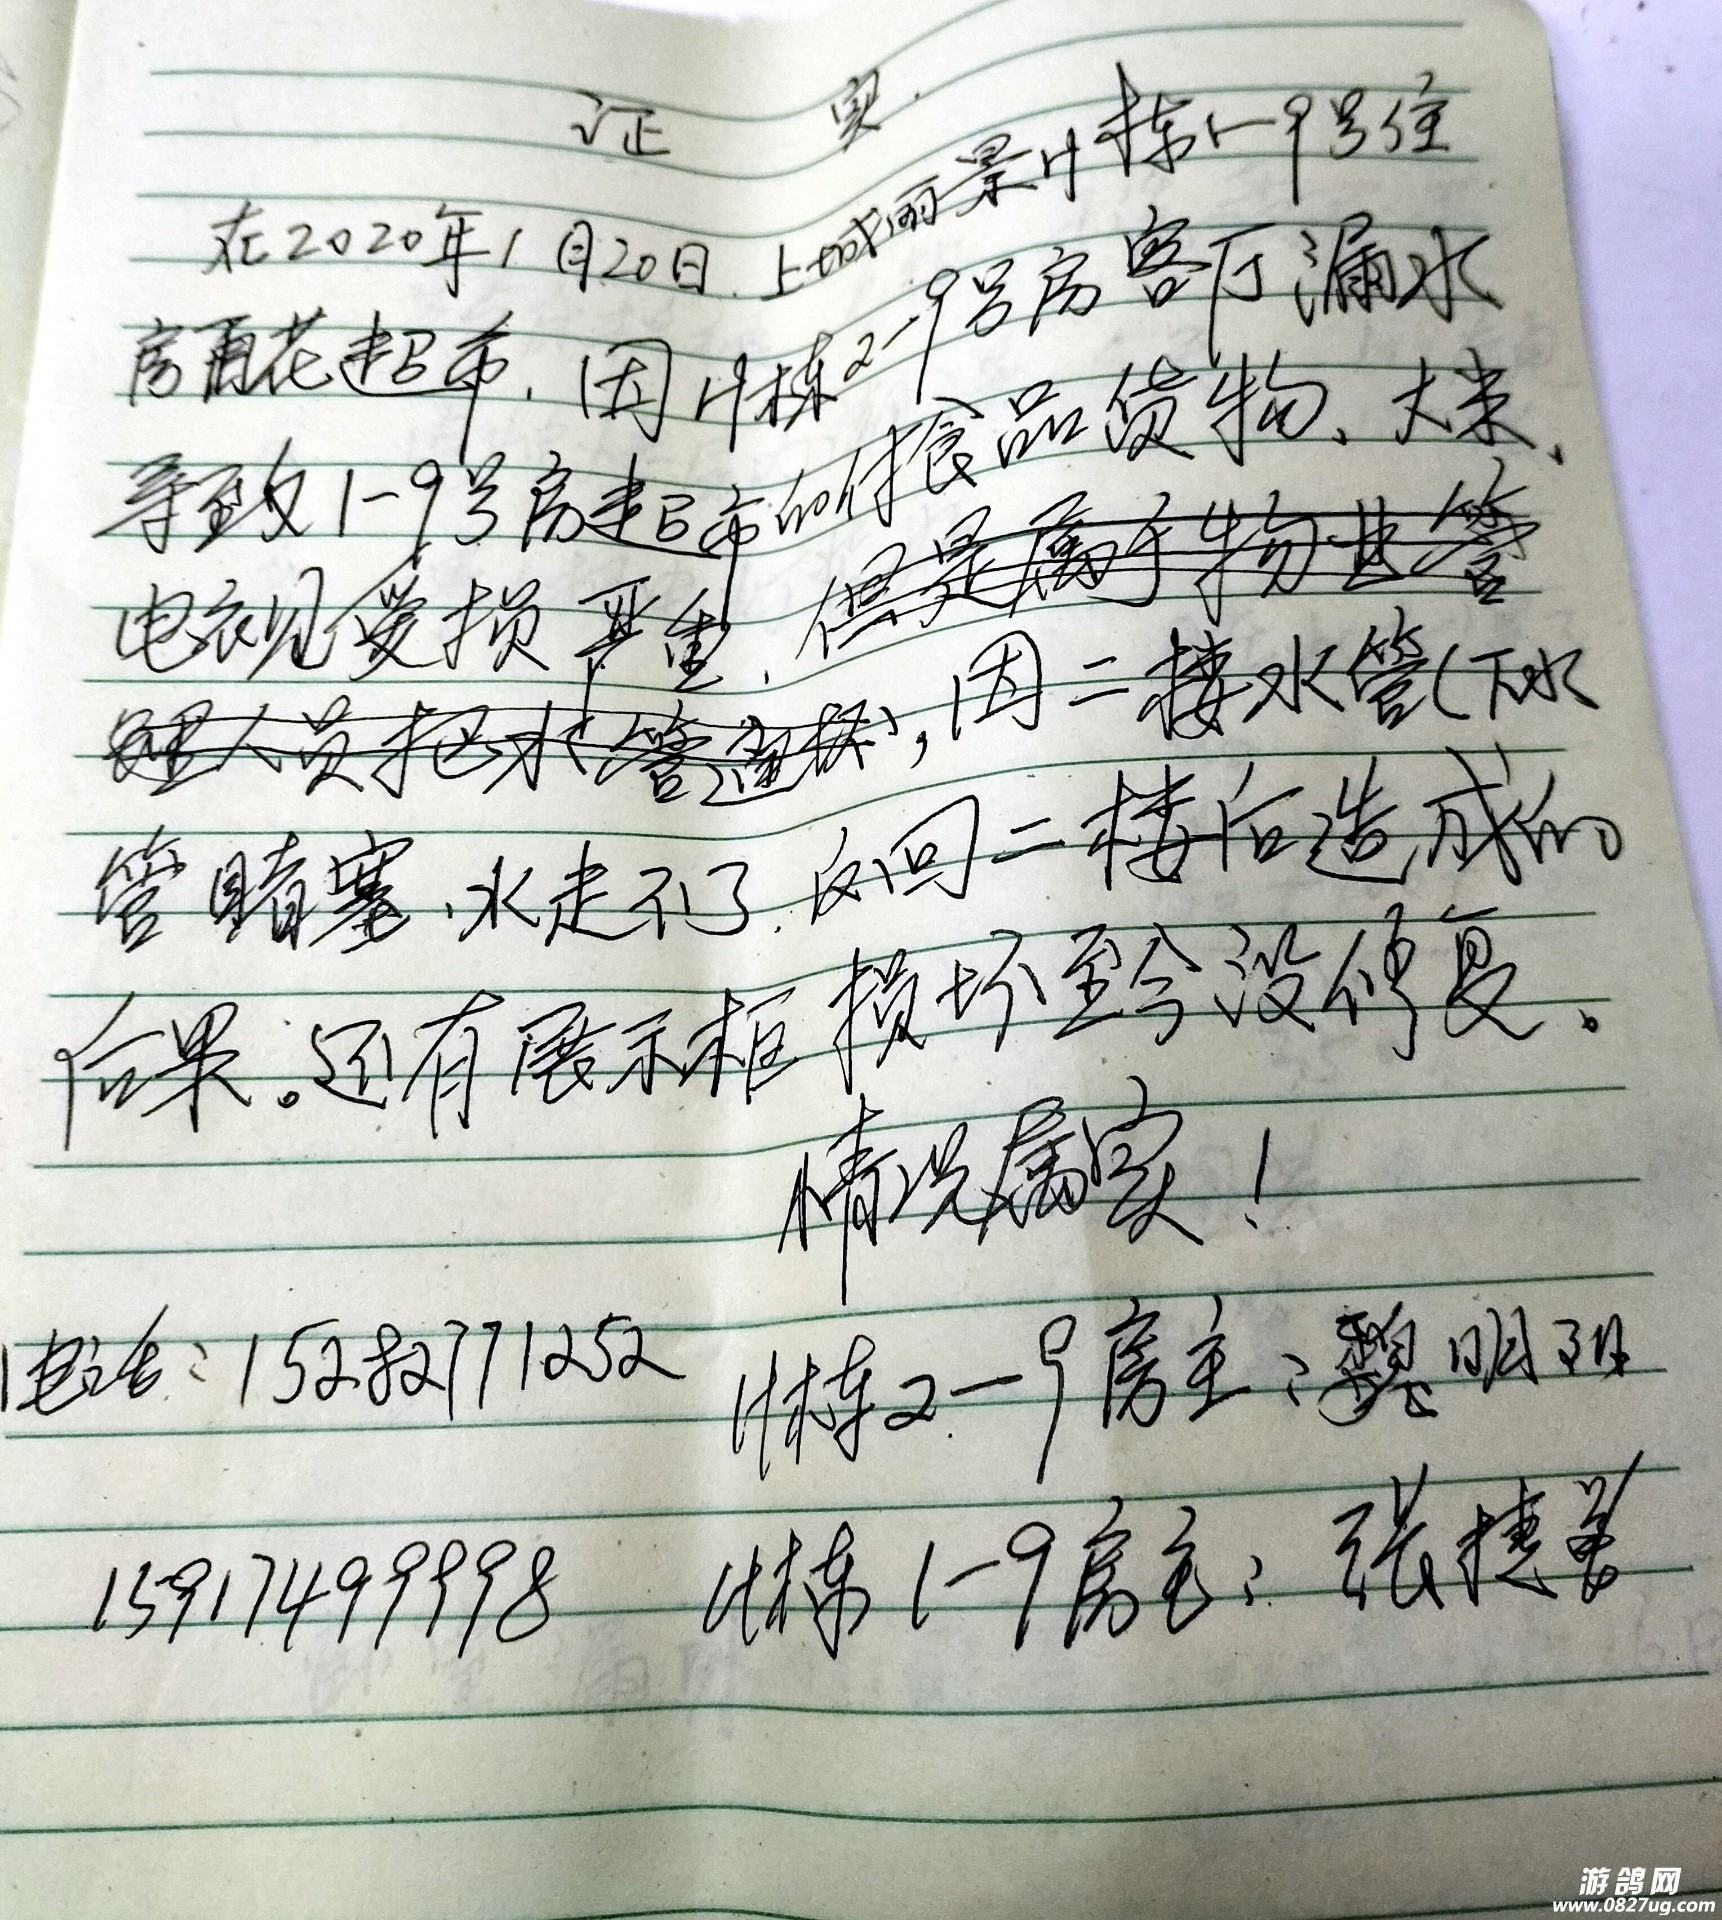 证 实
在2020年1月20日.上城丽景H栋1-9号住
房再花超市.因H栋2-9号房客厅漏水
导致1-9号房超市的付食品货物、大米、
电视受损严重.但是属于物业管
理人员把水管通坏,因二楼水管(下水
管睹塞、水走不了.反回二楼后造成的
后果。还有展示柜损坏至今没修复。
情况属实!
电话:15282771252 H栋2-9房主:魏明
15917499998 H栋1-9房主:张捷
游鸽网
www.0827ug.com